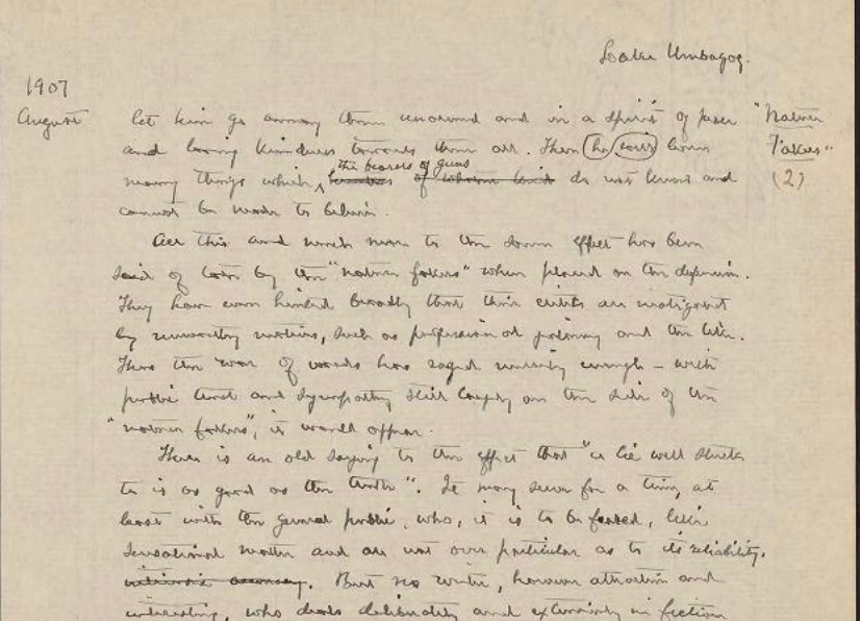 Lake Umbagog.
1907
August
"Nature
Fakers"
(2)
let him go among them unarmed and in a spirit of pure
and loving kindness towards them all. Then he will learn
many things which the bearers of guns do not know and
cannot be made to believe.
All this and much more to the same effect has been
said of late by the "nature fakers" when placed on the defensive.
They have even hinted broadly that their critics are instigated
by unworthy motives, such as professional jealousy and the like.
Thus the war of words has raged merrily enough – with
public trust and sympathy still largely on the side of the
"nature fakers", it would appear.
There is an old saying to the effect that "a lie well stuck
to is as good as the truth". It may serve for a time, at
least with the general public, who, it is to be feared, like
sensational matter and are not over particular as to its reliability.
But no writer, however attractive and
interesting, who deals deliberately and extensively in fiction